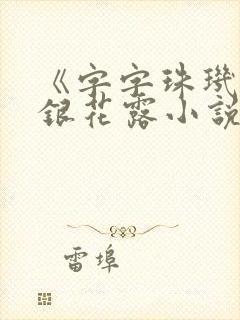 《字字珠璣
銀花露小說
雷埠